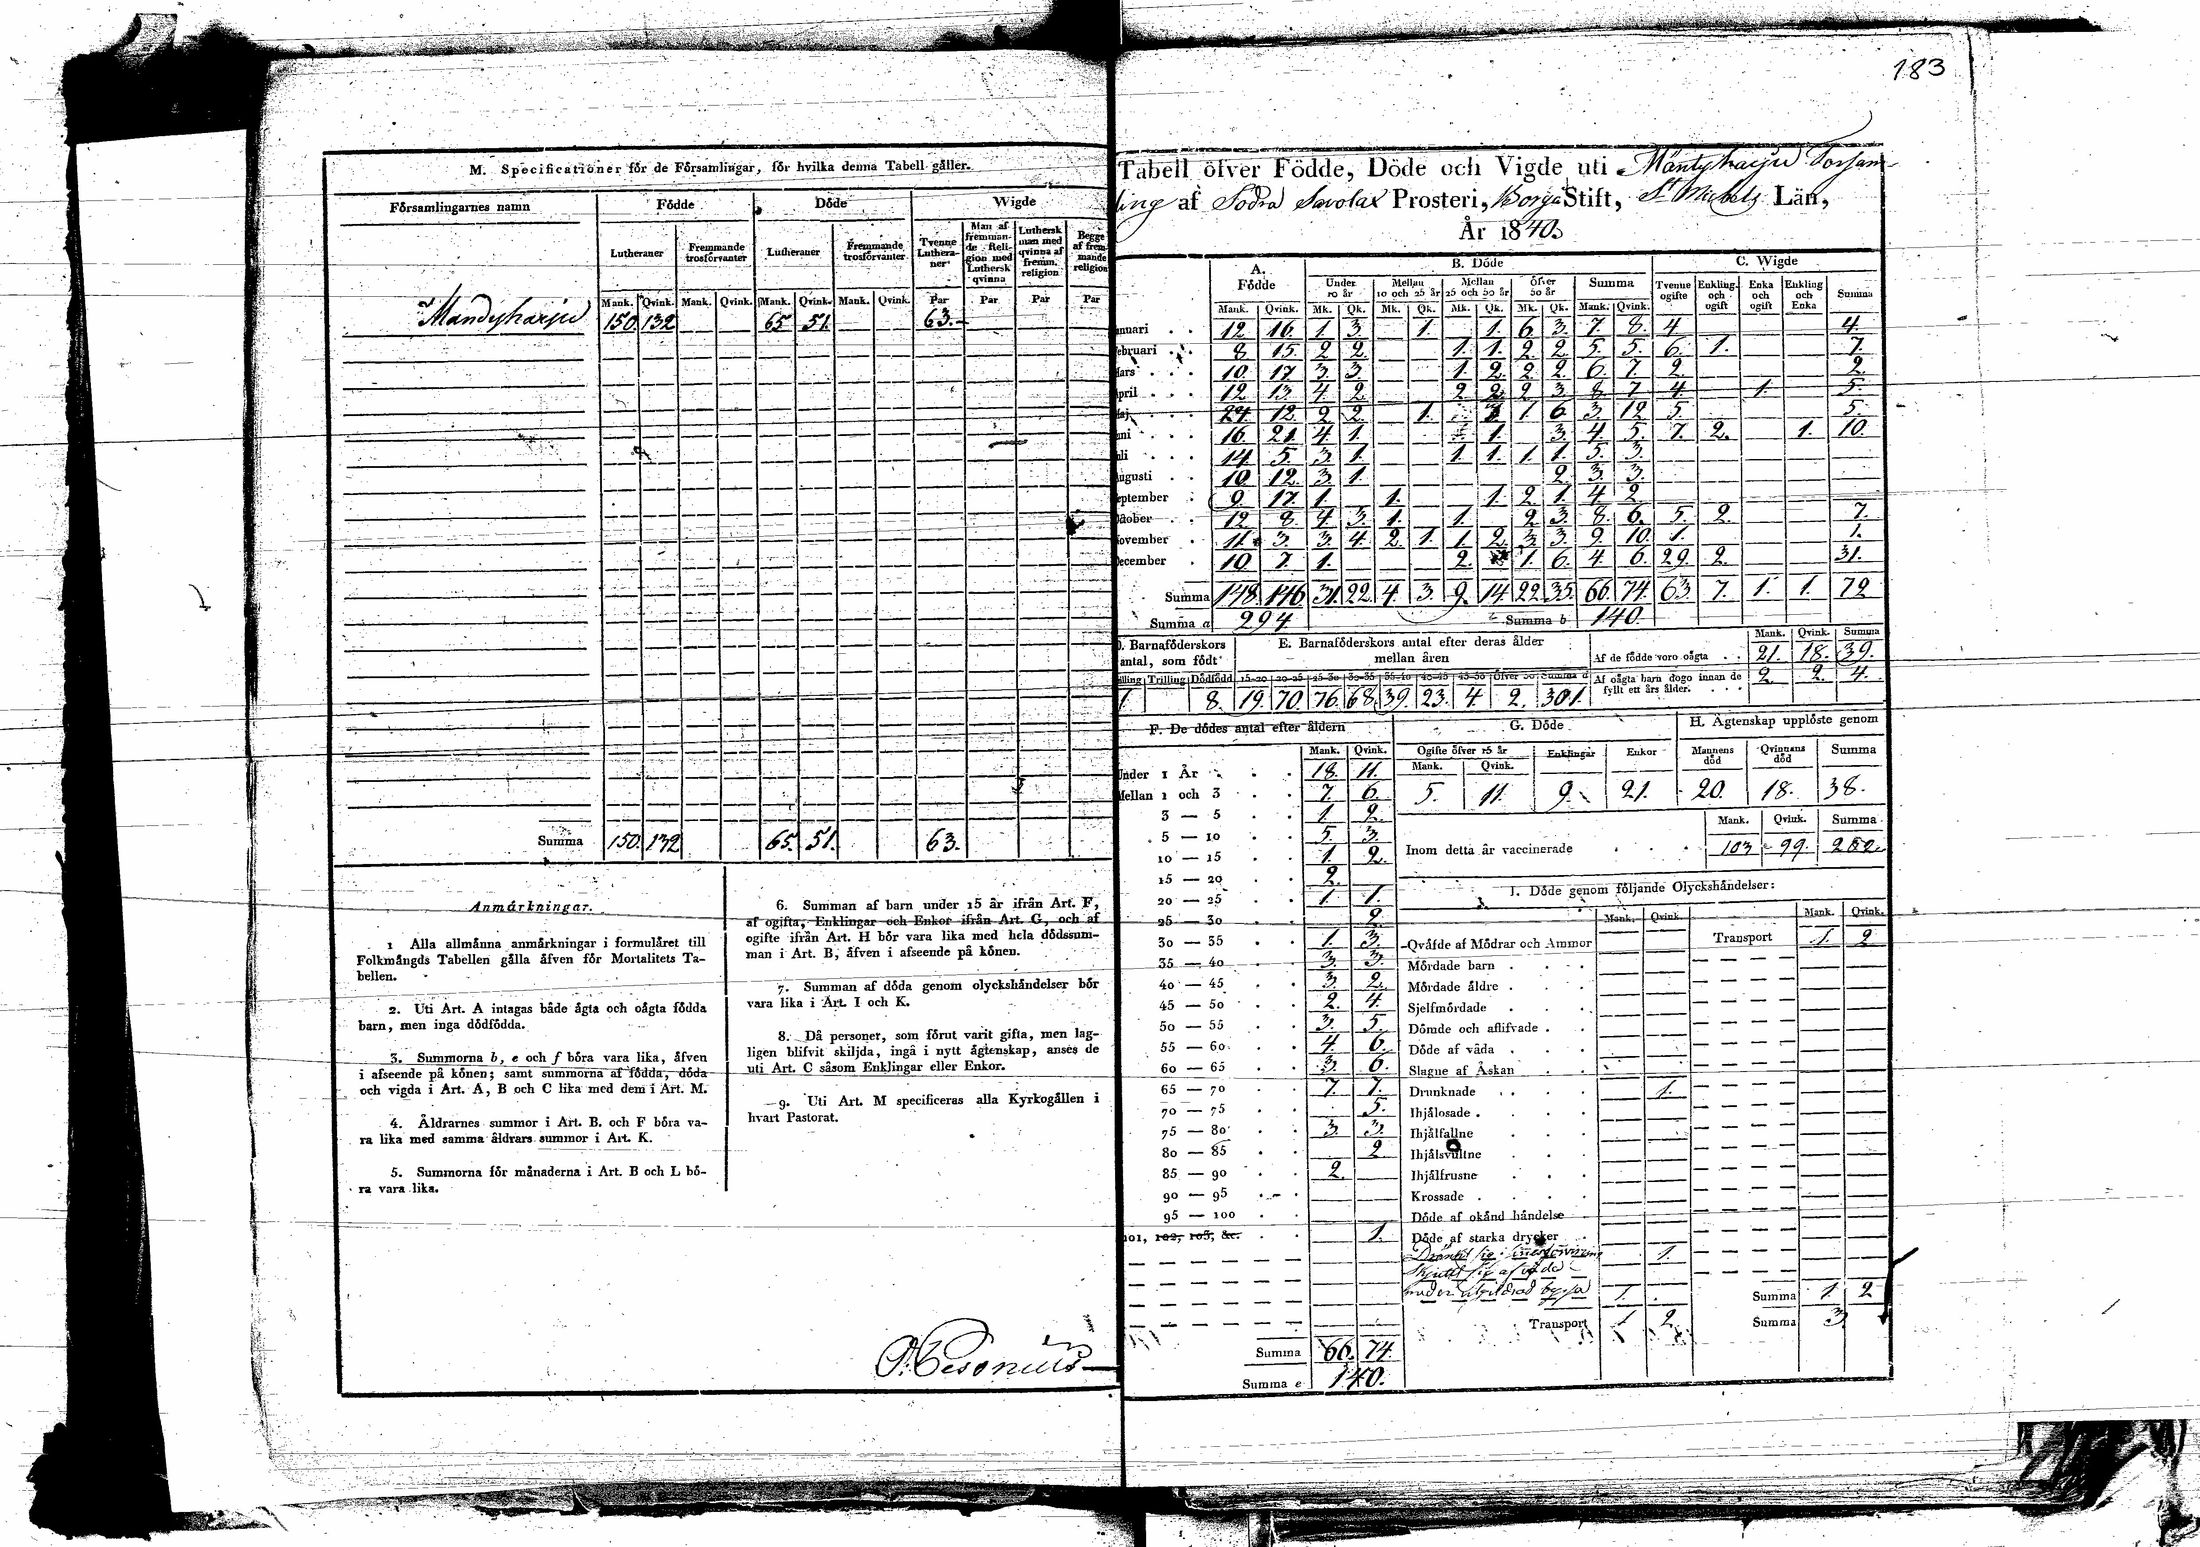 183
M. Specificationer för de Församlingar, för hvilka denna Tabell gäller.
Församlingarnes namn Födde Döde Wigde
Lutheraner Fremmande trosförvanter Lutheraner Fremmande trosförvanter Tvenne Lutheraner Man af fremmande Religion med Luthersk qvinna Luthersk man med qvinna af fremm. religion Begge af fremmande religion
Mank. Qvink. Mank. Qvink. Mank. Qvink. Mank. Qvink. Par Par Par Par
Mandyharju 150. 132 65 51. 63.
Summa 150. 132 65. 51. 63.
Anmärkningar.
1 Alla allmänna anmärkningar i formuläret till
Folkmängds Tabellen gälla äfven för Mortalitets Ta-
bellen.
2. Uti Art. A intagas både ägta och oägta födda
barn, men inga dödfödda.
3. Summorna b, e och f böra vara lika, äfven
i afseende på könen; samt summorna af födda, döda
och vigda i Art. A, B och C lika med dem i Art. M.
4. Åldrarnes summor i Art. B. och F böra va-
ra lika med samma åldrars summor i Art. K.
5. Summorna för månaderna i Art. B och L bö-
ra vara lika.
6. Summan af barn under 15 år ifrån Art. F,
af ogifta, Enklingar och Enkor ifrån Art. G, och af
ogifte ifrån Art. H bör vara lika med hela dödssum-
man i Art. B, äfven i afseende på könen.
7. Summan af döda genom olyckshändelser bör
vara lika i Art. I och K.
8. Då personer, som förut varit gifta, men lag-
ligen blifvit skiljda, ingå i nytt ägtenskap, anses de
uti Art. C såsom Enklingar eller Enkor.
9. Uti Art. M specificeras alla Kyrkogällen i
hvart Pastorat.
Tabell öfver Födde, Döde och Vigde uti Mäntyharju Försam-
ling af Södra Savolax Prosteri, Borgå Stift, St Michels Län,
År 1840.
A. Födde B. Döde C. Wigde
Under 10 år Mellan 10 och 25 år Mellan 25 och 50 år Öfver 50 år Summa Tvenne ogifte Enkling och ogift Enka och ogift Enkling och Enka Summa
Mank. Qvink. Mk. Qk. Mk. Qk. Mk. Qk. Mk. Qk. Mank. Qvink.
anuari 12 16. 1 3. 1. 1. 6. 3. 7. 8. 4 4.
ebruari 8. 15. 2 2. 1. 1. 2. 2. 5. 5. 6. 1. 7.
ars 10. 17 3. 3 1. 2. 2. 2. 6. 7. 2. 2.
pril 12 13. 4. 2. 2 2. 2 3. 8. 7 4. 1. 5.
aj 24. 12. 2. 2. 1. 1. 6. 3. 12 5. 5.
uni 16. 21. 4. 1. 1. 3. 4. 5. 7. 2. 1. 10.
uli 14. 5. 3. 1. 1. 1. 1. 1. 5. 3.
ugusti 10 12. 3. 1. 2. 3. 3.
eptember 9. 17. 1. 1. 1. 2. 1. 4. 2.
ktober 12. 8. 4. 3. 1. 1. 2. 3. 8. 6. 5. 2. 7.
ovember 11. 3. 3. 4. 2. 1. 1. 2. 3. 3. 9. 10. 1. 1.
ecember 10. 7. 1. 2. 1. 6. 4. 6. 29. 2. 31.
Summa 148. 146. 31. 22. 4. 3. 9. 14 22. 35. 66. 74. 63 7. 1. 1. 72
Summa a 294. Summa b 140.
D. Barnaföderskors antal, som födt E. Barnaföderskors antal efter deras ålder mellan åren Mank. Qvink. Summa
Af de födde voro oägta 21. 18. 39.
lling Trilling Dödfödd 15-20 20-25 25-30 30-35 35-40 40-45 45-50 Öfver 50 Summa
1. 8. 19. 70. 76. 68. 39. 23. 4 2. 301.
Af oägta barn dogo innan de fyllt ett års ålder. 2. 2. 4.
F. De dödes antal efter åldern
Mank. Qvink.
Under 1 År 18. 11.
Mellan 1 och 3 7. 6.
3 — 5 1. 2.
5 — 10 5. 3.
10 — 15 1. 2.
15 — 20 2.
20 — 25 1 1.
25 — 30 2.
30 — 35 1. 3.
35 — 40 3. 3.
40 — 45 3. 2.
45 — 50 2. 4.
50 — 55 3. 5.
55 — 60 4. 6.
60 — 65 3. 6.
65 — 70 7. 7.
70 — 75 5.
75 — 80 3. 3.
80 — 85 2
85 — 90 2.
90 — 95
95 — 100
101, 102, 103, &c. 1.
Summa 66. 74.
Summa e 140.
G. Döde H. Ägtenskap upplöste genom
Ogifte öfver 15 år Enklingar Enkor Mannens död Qvinnans död Summa
Mank. Qvink.
5. 11. 9. 21. 20. 18. 38.
Mank. Qvink. Summa
Inom detta år vaccinerade 103 99. 202.
I. Döde genom följande Olyckshändelser:
Mank. Qvink. Mank. Qvink.
Qväfde af Mödrar och Ammor Transport 1. 2
Mördade barn
Mördade äldre
Sjelfmördade
Dömde och aflifvade
Döde af våda
Slagne af Åskan
Drunknade 1.
Ihjälosade
Ihjälfallne
Ihjälsvultne
Ihjälfrusne
Krossade
Döde af okänd händelse
Döde af starka drycker
1.
1. Summa 1. 2
Transport 1 2. Summa 3.